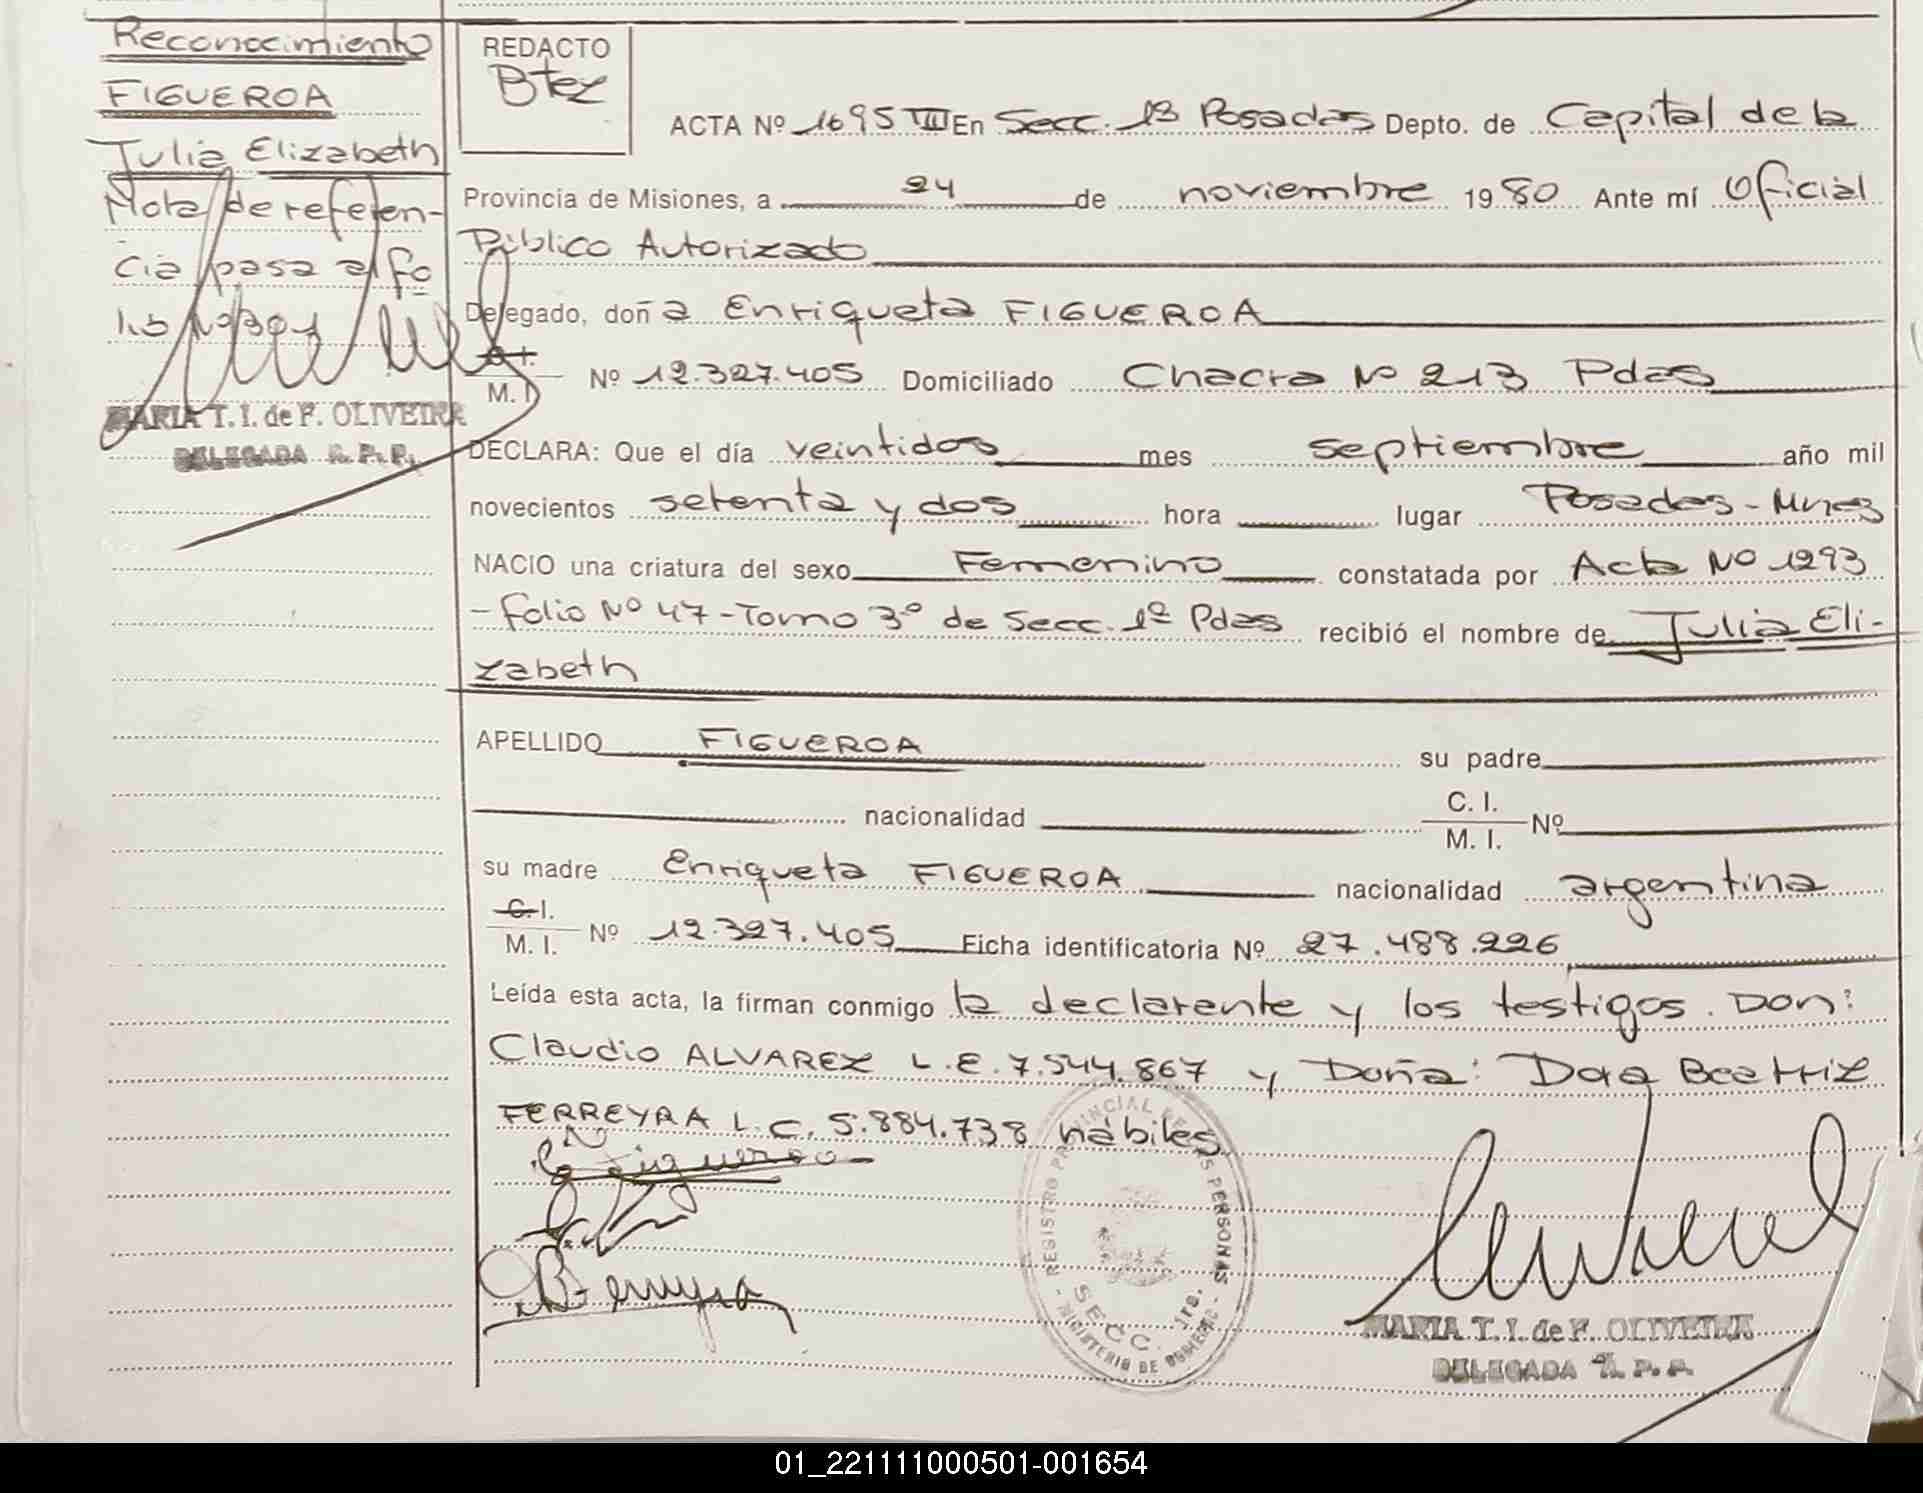 Reconocimiento
FIGUEROA
Julia Elizabeth
Nota de referen-
cia pasa al fo
lio Nº
MARIA T. I. de F. OLIVEIRA
DELEGADA R. P. P.
REDACTO
Btez
ACTA Nº 1695 VIII En Secc. 1ª Posadas Depto. de Capital de la
Provincia de Misiones, a 24 de noviembre 1980 Ante mí Oficial
Público Autorizado
Delegado, doña Enriqueta FIGUEROA
C. I.
M. I. Nº 12.327.405 Domiciliado Chacra Nº 213 Pdas
DECLARA: Que el día veintidos mes septiembre año mil
novecientos setenta y dos hora lugar Posadas - Mnes
NACIO una criatura del sexo Femenino constatada por Acta Nº 1293
- Folio Nº 47 - Tomo 3º de Secc. 1ª Pdas recibió el nombre de Julia Eli-
zabeth
APELLIDO FIGUEROA su padre
nacionalidad C. I.
M. I. Nº
su madre Enriqueta FIGUEROA nacionalidad argentina
C. I.
M. I. Nº 12.327.405 Ficha identificatoria Nº 27.488.226
Leída esta acta, la firman conmigo la declarante y los testigos. Don:
Claudio ALVAREZ L.E. 7.544.867 y Doña: Dora Beatriz
FERREYRA L.C. 5.884.738 hábiles
REGISTRO PROVINCIAL DE LAS PERSONAS
SECC. 1ra.
- MINISTERIO DE GOBIERNO -
MARIA T. I. de F. OLIVEIRA
DELEGADA R. P. P.
01_221111000501-001654